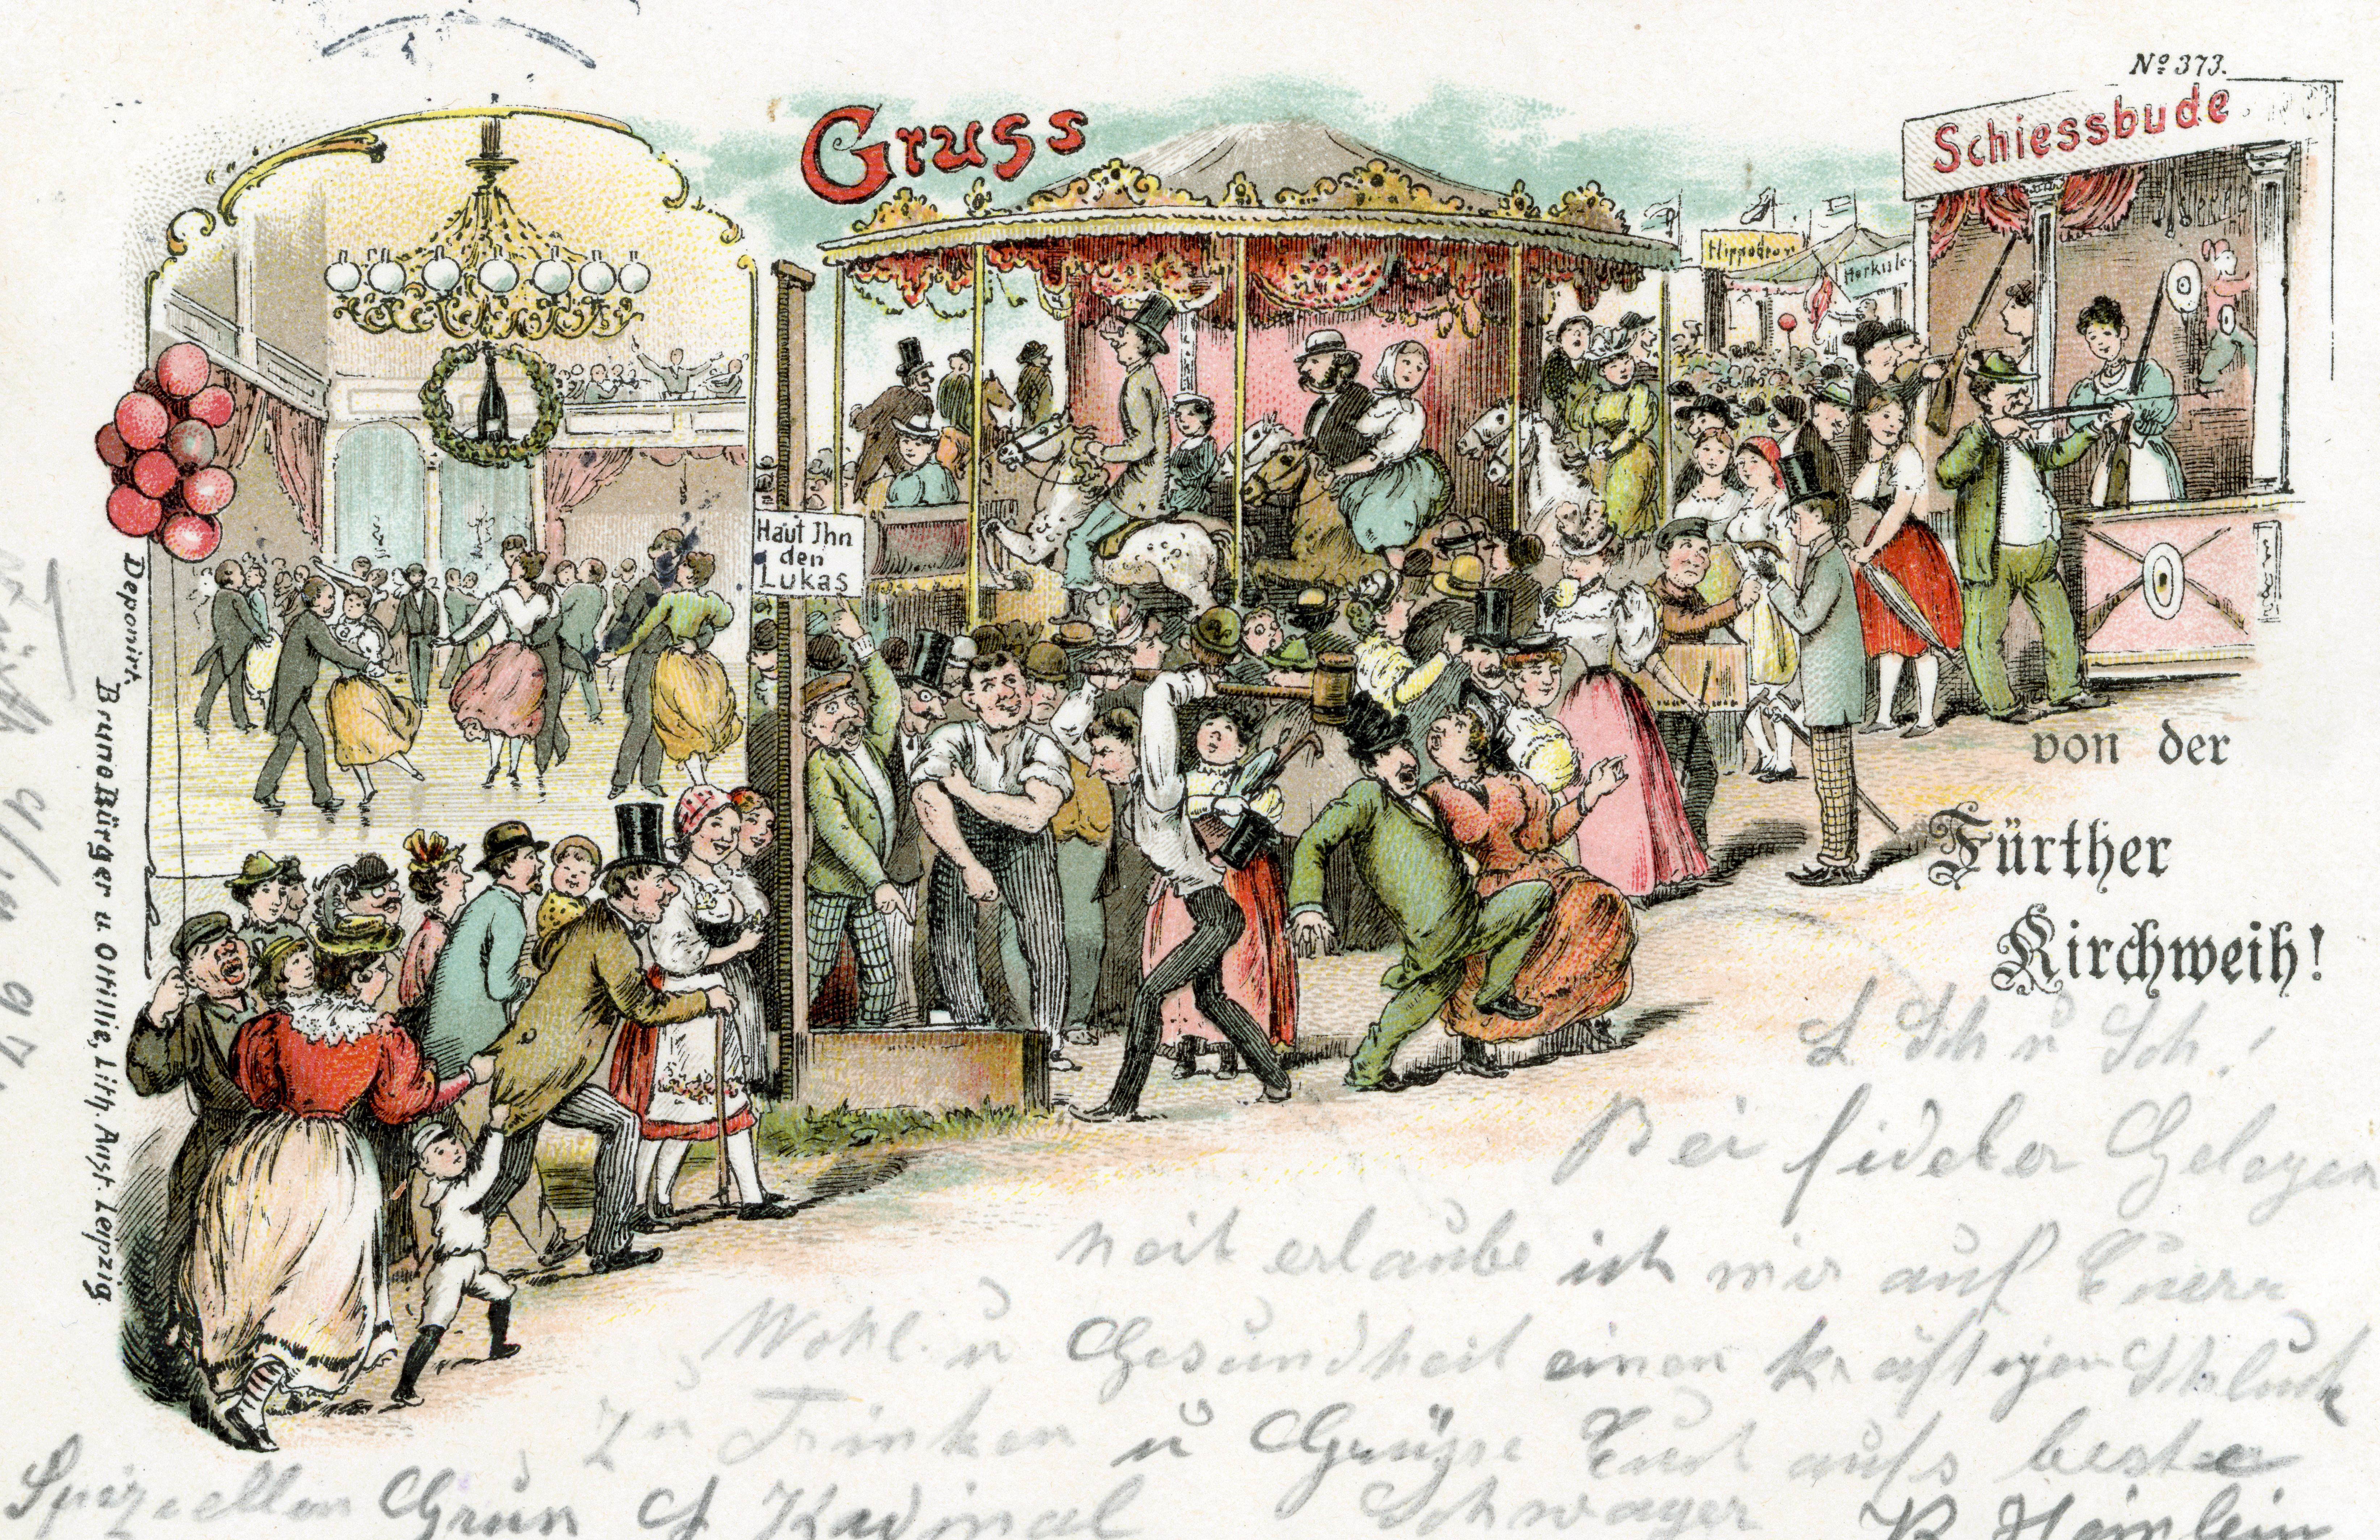 Nº 373.
Gruss
Schiessbude
Hippodrom
Herkules
Haut Ihn
den
Lukas
von der
Fürther
Kirchweih!
Deponirt.
Bruno Bürger u. Ottillie, Lith. Anst. Leipzig.
L Sch u Sch!
Bei fideler Gelegen
heit erlaube ich mir auf Euer
Wohl u Gesundheit einen kräftigen Schluck
zu Trinken u Grüsse Euch aufs beste
Schwager
Spizeellen Gruss